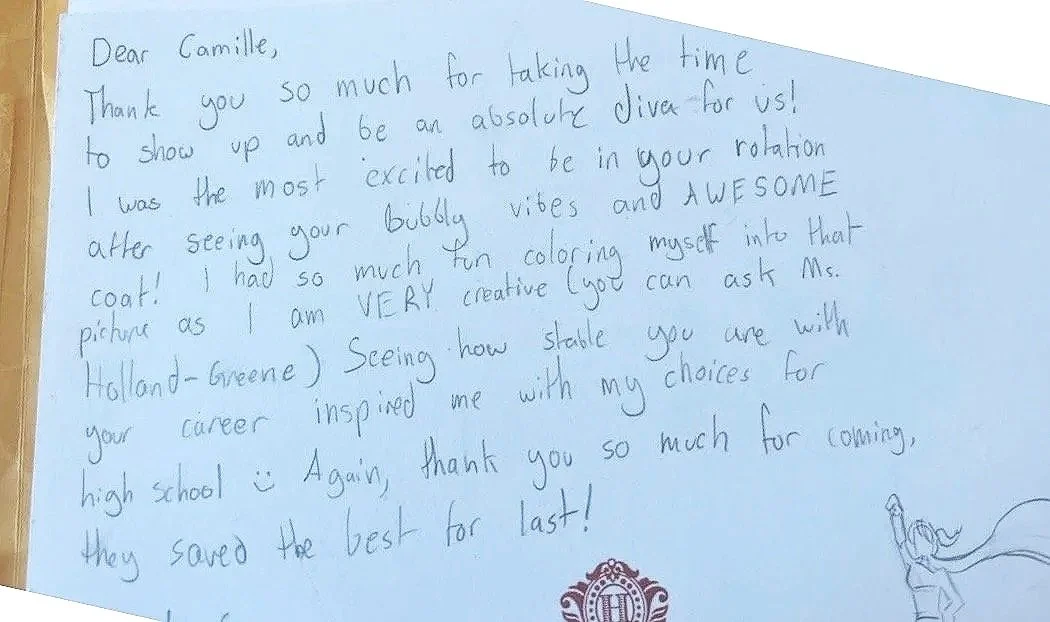 Dear Camille,
Thank you so much for taking the time
to show up and be an absolute diva for us!
I was the most excited to be in your rotation
after seeing your bubbly vibes and AWESOME
coat! I had so much fun coloring myself into that
picture as I am VERY creative (you can ask Ms.
Holland-Greene) Seeing how stable you are with
your career inspired me with my choices for
high school :) Again, thank you so much for coming,
they saved the best for last!
H